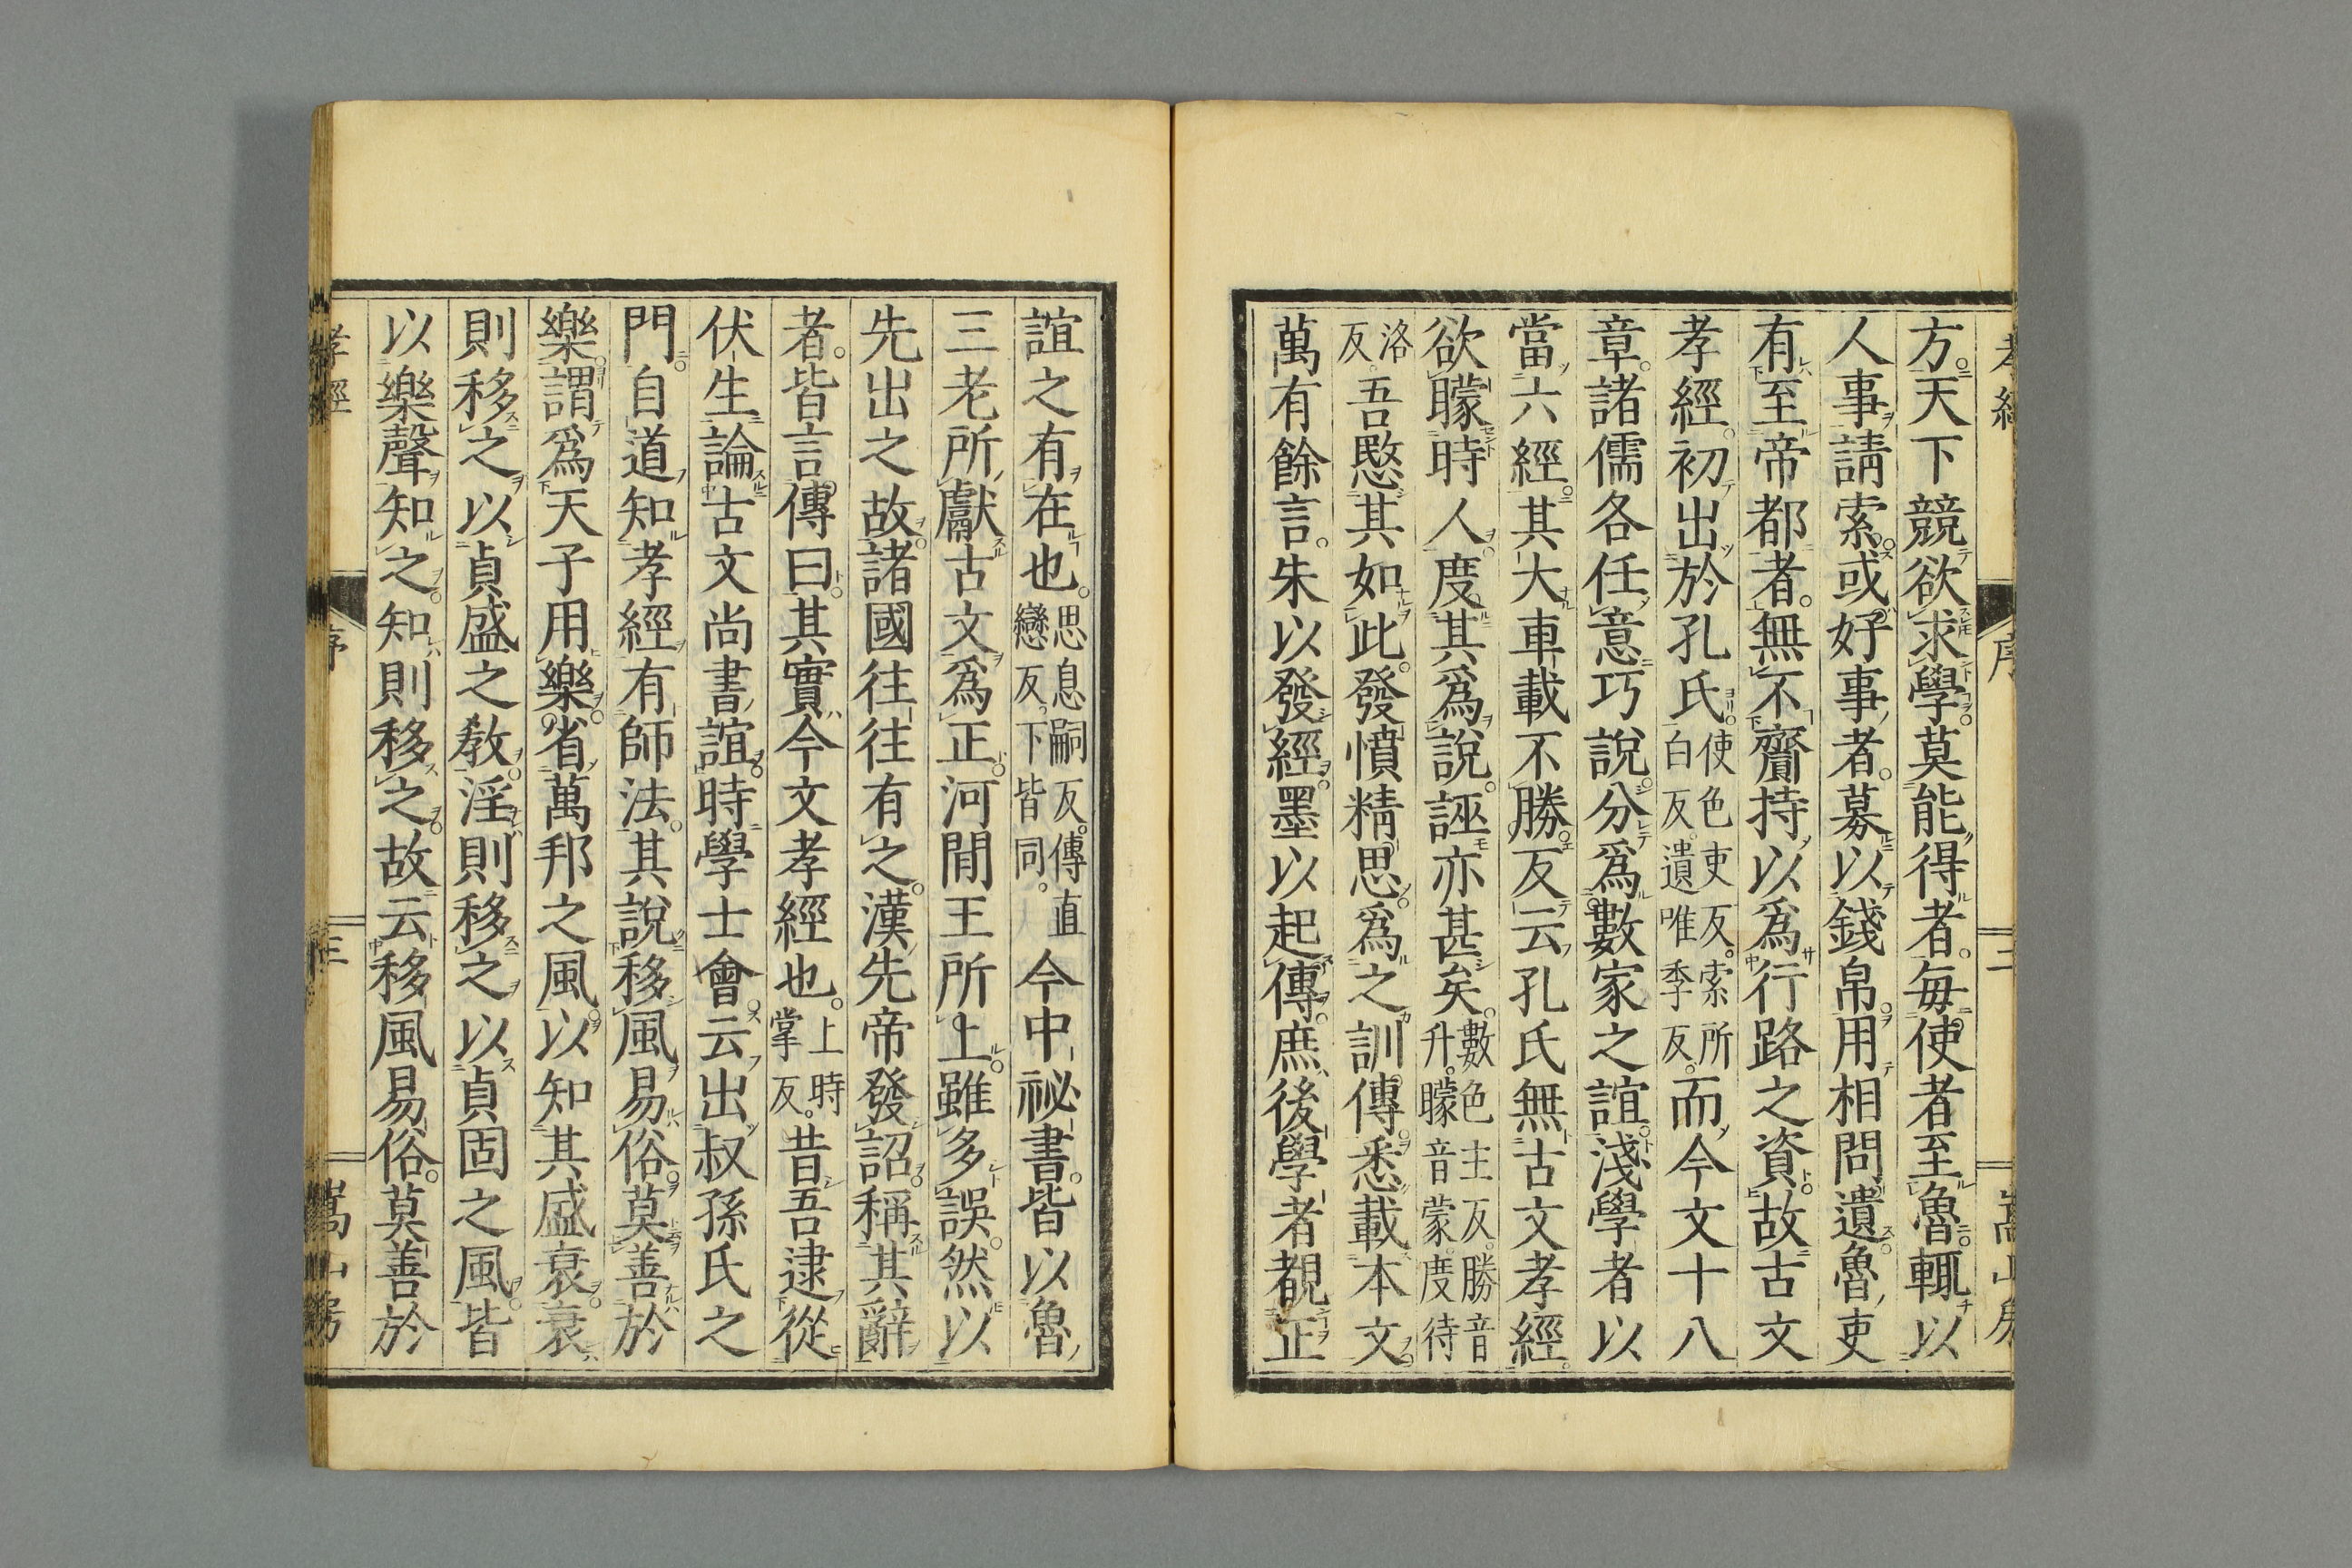 方天下競欲求學莫能得者每使者至魯輒以
人事請索或好事者募以錢帛用相問遺魯吏
有至帝都者無不齎持以爲行路之資故古文
孝經初出於孔氏使色吏反索所白反遺唯季反而今文十八
章諸儒各任意巧說分爲數家之誼淺學者以
當六經其大車載不勝反云孔氏無古文孝經
欲矇時人度其爲說誣亦甚矣數色主反勝音升矇音蒙度待
洛反吾愍其如此發憤精思爲之訓傳悉載本文
萬有餘言朱以發經墨以起傳庶後學者覩正
誼之有在也思息嗣反傳直戀反下皆同今中祕書皆以魯
三老所獻古文爲正河間王所上雖多誤然以
先出之故諸國往往有之漢先帝發詔稱其辭
者皆言傳曰其實今文孝經也上時掌反昔吾逮從
伏生論古文尚書誼時學士會云出叔孫氏之
門自道知孝經有師法其說移風易俗莫善於
樂謂爲天子用樂省萬邦之風以知其盛衰衰
則移之以貞盛之教淫則移之以貞固之風皆
以樂聲知之知則移之故云移風易俗莫善於
孝經 序 三 嵩山房